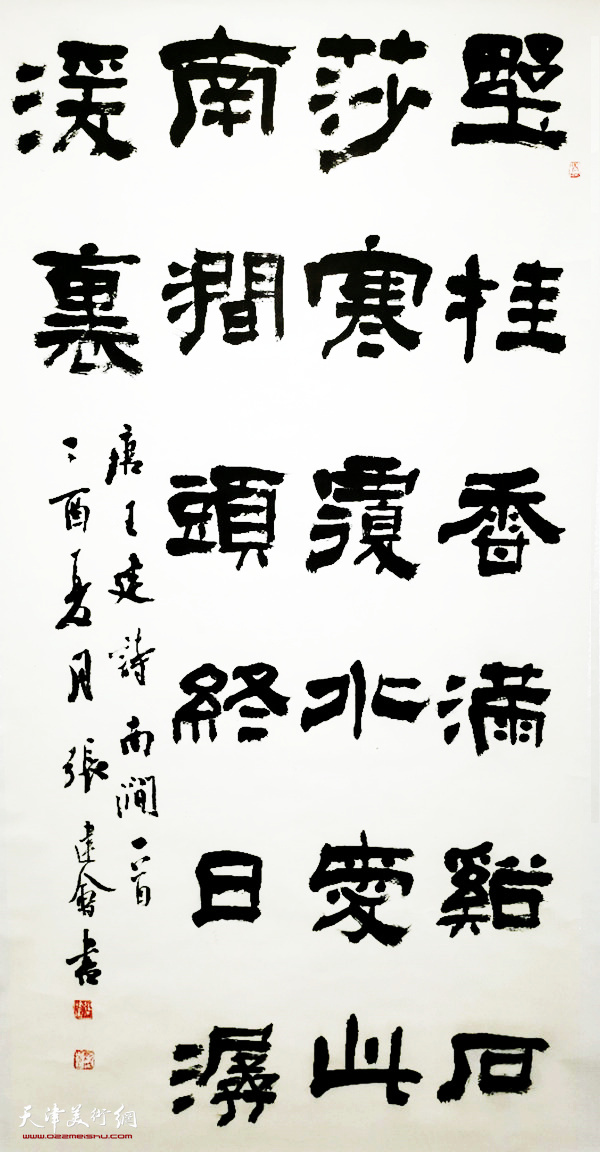 墅桂香滿谿石
莎寒覆水愛此
南澗頭終日潺
湲裏
唐王建詩南澗一首
丁酉夏月張建會書
天津美術網
www.022meishu.com